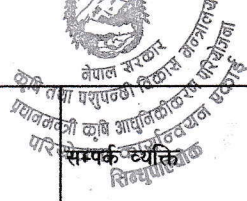 नेपाल सरकार
कृषि तथा पशुपन्छी विकास मन्त्रालय
प्रधानमन्त्री कृषि आधुनिकीकरण परियोजना
परियोजना कार्यान्वयन एकाई
सिन्धुपाल्चोक
सम्पर्क व्यक्ति